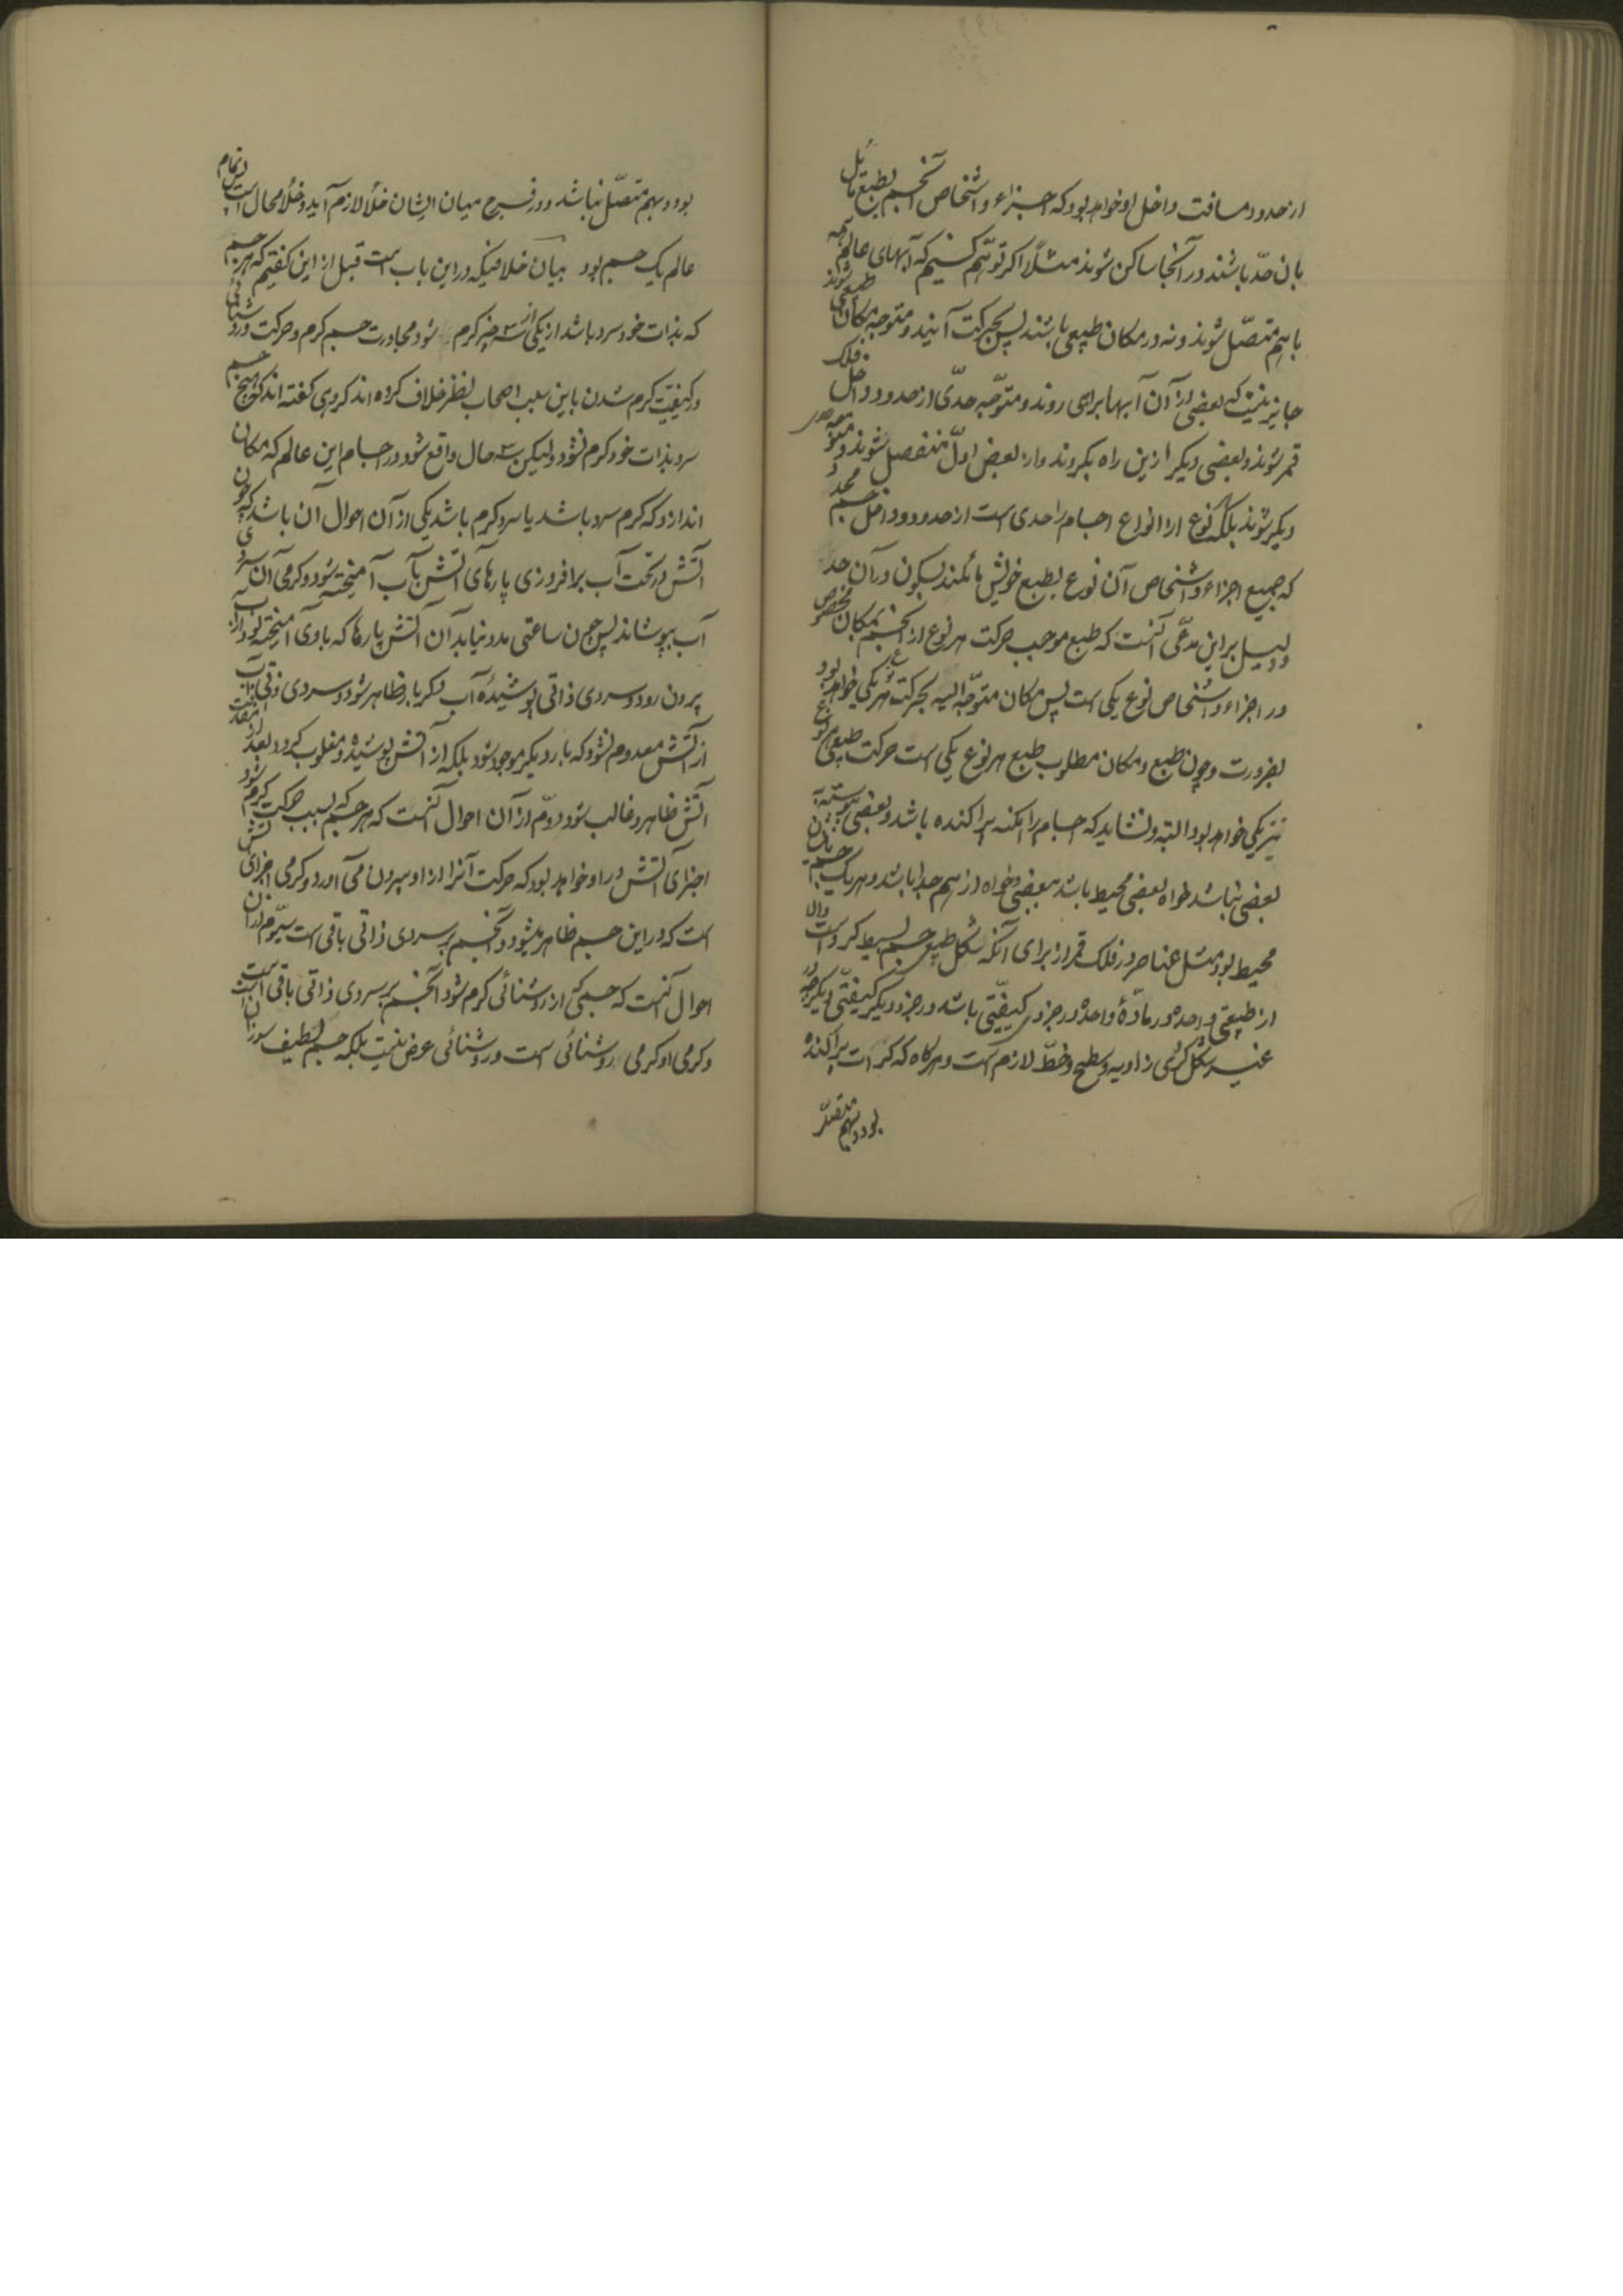 از حدود مسافت داخل او خواهد بود که اجزاء و اشخاص آنجسم بطبع مائل
بان حدّ باشند و در آنجا ساکن شوند مثلاً اکر توهّم کنیم که آبهای عالم همه
با هم متصّل شوند و نه در مکان طبیعی باشند پس بحرکت آیند و متوجه مکان طبیعی شوند
جایز نیست که بعضی از آن آبها براهی روند و متوجّه حدّی از حدود داخل فلک
قمر شوند و بعضی دیکر ازین راه بکروند و از بعض اوّل منفصل شوند و متوجه
دیکر شوند بلکه نوع از انواع اجسام را حدی است از حدود داخل جسم محدد
که جمیع اجزاء و اشخاص آن نوع بطبع خویش مائلند بسکون در آن حد
و دلیل براین مدّعی آنست که طبع موجب حرکت هر نوع از آنجسم بمکان مخصوص
در اجزاء و اشخاص نوع یکی است پس مکان متوجّه الیه بحرکت هر نوع یکی خواهد بود
بضرورت و چون طبع و مکان مطلوب طبع هر نوع یکی است حرکت طبیعی هر نوع
نیز یکی خواهد بود البته و نشاید که اجسام را امکنه پراکنده باشد و بعضی پیوسته
بعضی نباشد خواه بعضی محیط باشد ببعضی و خواه از هم جدا باشد و هر یک
محیط بود مثل عناصر در فلک قمر از برای آنکه شکل طبیعی جسم بسیط کرویست والا
از طبیعتی واحده در مادّهٔ واحده در جزوی کیفیّتی باشد و در جزو دیکر کیفیّتی دیکر چه در
غیر شکل کری زاویه و سطح و خطّ لازم است و هرکاه که کرات پراکنده
بود و بهم متصّل
بود و بهم متصّل نباشد و در فرج میان ایشان خلأ لازم آید و خلأ محال است پس تمام
عالم یک جسم بود بیان خلافیکه در این باب است قبل از این کفتیم که هر جسم
که بذات خود سرد باشد از یکی از سه چیز کرم شود مجاورت جسم کرم و حرکت و روشنائی
در کیفیّت کرم شدن باین سبب اصحاب نظر خلاف کرده اند کروهی کفته اند که هیچ جسم
سرد بذات خود کرم نشود ولیکن سه حال واقع شود در اجسام این عالم که مکان
اندازد که کرم سرد باشد یا سرد کرم باشد یکی از آن احوال آن باشد که چون
آتش در تحت آب برافروزی پارهای آتش بآب آمیخته شود و کرمی آن سردی
آب بپوشاند پس چون ساعتی مدد نیابد آن آتش پارها که با وی آمیخته بود از آب
بیرون رود و سردی ذاتی پوشیدهٔ آب دکر بار ظاهر شود و سردی ذاتی آب
از آتش معدوم نشود که بار دیکر موجود شود بلکه از آتش پوشیده و مغلوب کردد بعد از مفارقت
آتش ظاهر و غالب شود دوّم از آن احوال آنست که هر جسم که بسبب حرکت کرم شود
اجزای آتش در او خواهد بود که حرکت آنرا از او بیرون می آورد و کرمی اجزای آتش
است که در این جسم ظاهر میشود و آنجسم بر سردی ذاتی باقی است سیّوم از آن
احوال آنست که جسمی که از روشنائی کرم شود آنجسم بر سردی ذاتی باقی است
و کرمی او کرمی روشنائی است و روشنائی عرض نیست بلکه جسم لطیف سوزان